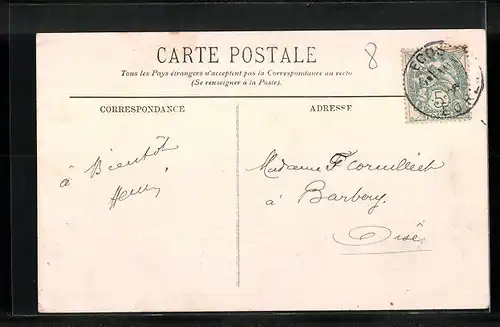 CARTE POSTALE
8
Tous les Pays étrangers n'acceptent pas la Correspondance au recto
(Se renseigner à la Poste).
CORRESPONDANCE
ADRESSE
à Bientôt
Henri
Madame F Cornilliet
à Barbery
Oise
5
EURE